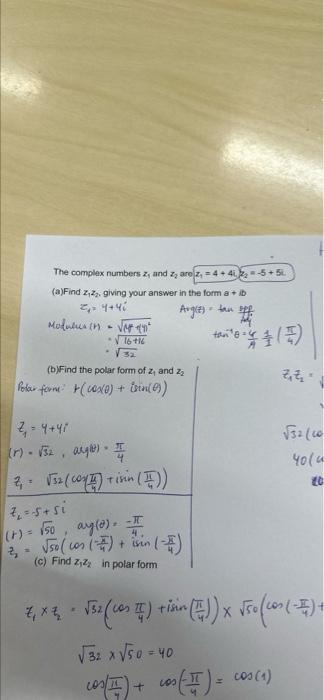 The complex numbers z₁ and z₂ are z₁ = 4 + 4i, z₂ = -5 + 5i.
(a)Find z₁z₂, giving your answer in the form a + ib
z₁ = 4+4i
Arg(z) = tan opp/adj
Modulus (r) = √(4)² + (4)²
= √16+16
= √32
tan⁻¹θ = 4/4 1/1 (π/4)
(b)Find the polar form of z₁ and z₂
Polar form: r(cos(θ) + isin(θ))
z₁z₂ =
z₁ = 4+4i
√32 (co
(r) = √32, arg(θ) = π/4
40 (
z₁ = √32 (cos(π/4) + isin(π/4))
z₂ = -5 + 5i
(r) = √50, arg(θ) = -π/4
z₂ = √50 (cos(-π/4) + isin(-π/4))
(c) Find z₁z₂ in polar form
z₁ × z₂ = √32 (cos(π/4) + isin(π/4)) × √50 (cos(-π/4) +
√32 × √50 = 40
cos(π/4) + cos(-π/4) = cos(1)